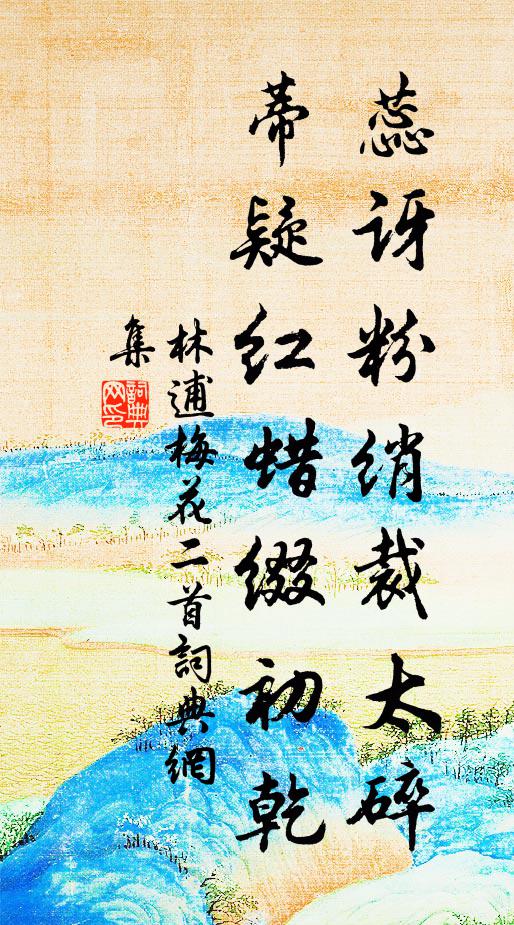 蕊讶粉绡裁太碎
蒂疑红蜡缀初乾
林逋梅花二首詞典網
集
詞典網印